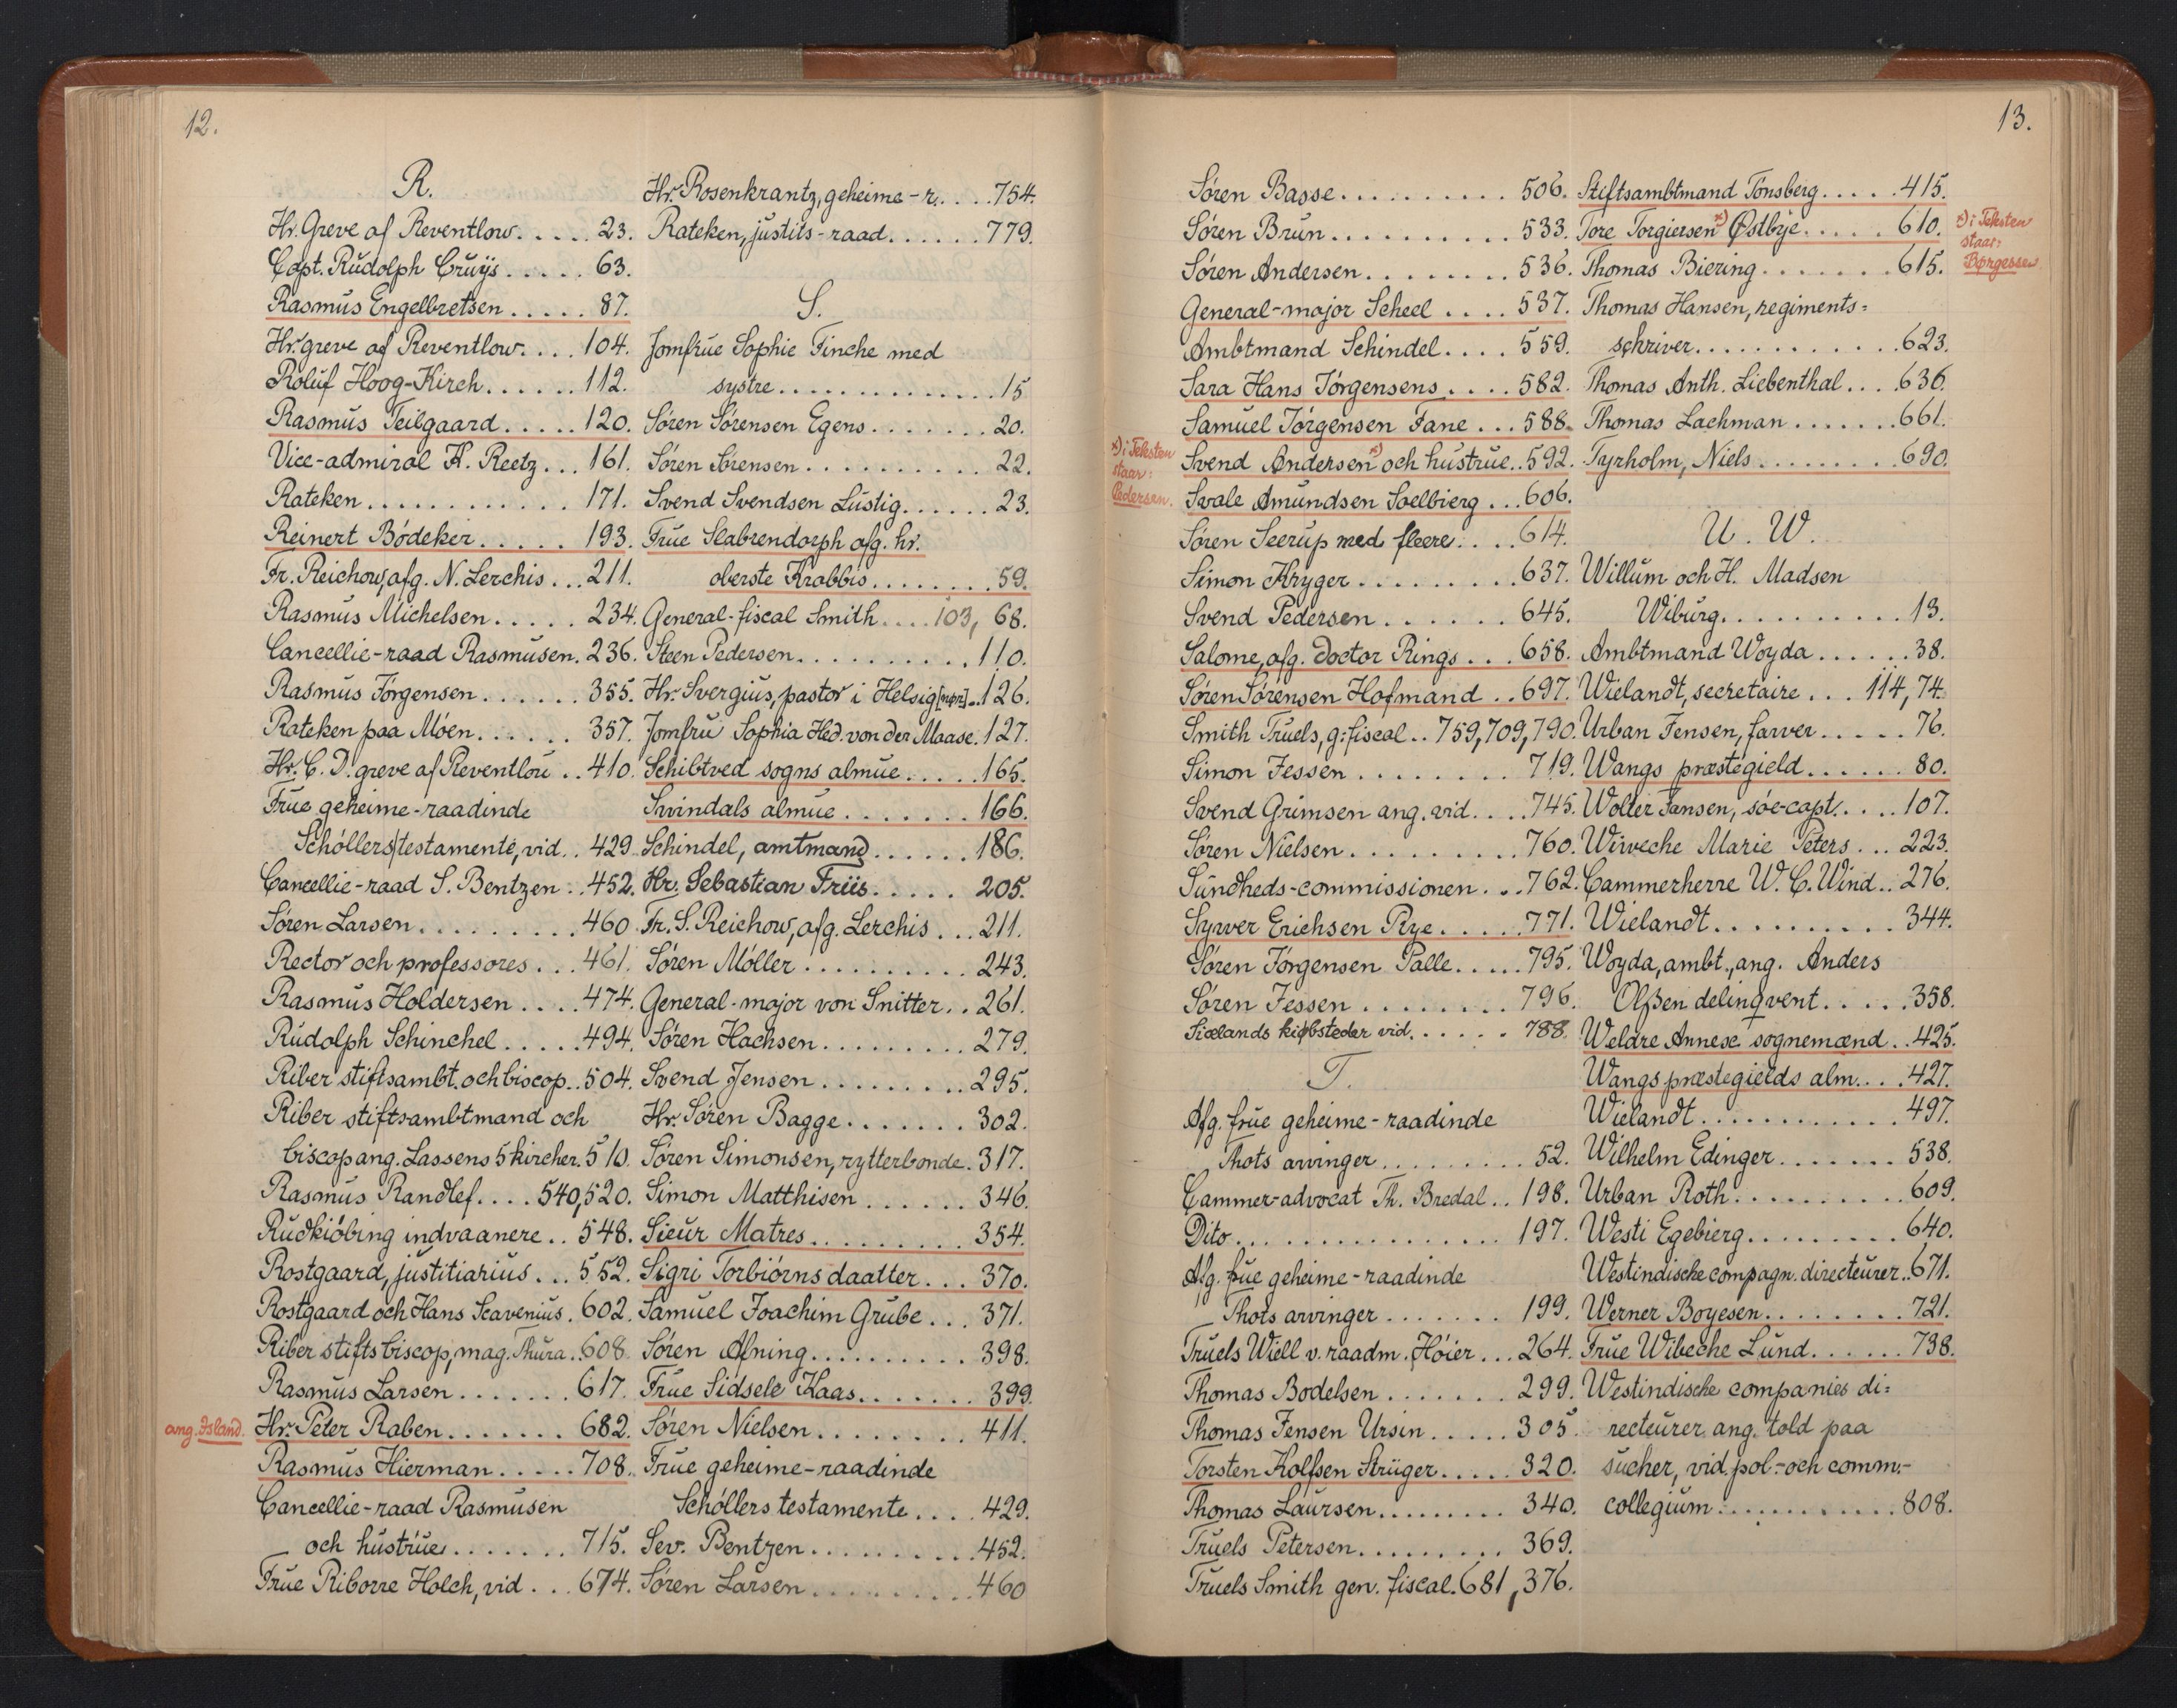 12.
R.
Hr. Greve af Reventlow..... 23.
Capt. Rudolph Cruijs..... 63.
Rasmus Engelbretsen..... 87.
Hr. greve af Reventlow.... 104.
Roluf Hoog-Kirch...... 112.
Rasmus Teilgaard..... 120.
Vice-admiral K. Reetz... 161.
Rateken............ 171.
Reinert Bödeker..... 193.
Fr. Reichow, afg. N. Lerchis... 211.
Rasmus Michelsen..... 234.
Cancellie-raad Rasmusen. 236.
Rasmus Jörgensen...... 355.
Rateken paa Möen...... 357.
Hr. C. D. greve af Reventlou.. 410.
Frue geheime-raadinde
Schöllers testamente, vid.. 429.
Cancellie-raad S. Bentzen.. 452.
Søren Larsen......... 460.
Rector och professores... 461.
Rasmus Holdersen.... 474.
Rudolph Schinchel..... 494.
Riber stiftsambt. och biscop.. 504.
Riber stiftsambtmand och
biscop ang. Lassens 5 kircher. 510.
Rasmus Randlef.... 540, 520.
Rudkiöbing indvaanere.. 548.
Rostgaard, justitiarius... 552.
Rostgaard och Hans Scavenius. 602.
Riber stifts biscop, mag. Thura.. 608.
Rasmus Larsen....... 617.
ang. Island.
Hr. Peter Raben....... 682.
Rasmus Hierman..... 708.
Cancellie-raad Rasmusen
och hustrue....... 715.
Frue Riborre Holch, vid... 674.
Hr. Rosenkrantz, geheime-r..... 754.
Rateken, justits-raad...... 779.
S.
Jomfrue Sophie Finche med
systre.............. 15
Søren Sørensen Egens....... 20.
Søren Sørensen.......... 22.
Svend Svendsen Lustig...... 23.
Frue Slabrendorph afg. hr.
oberste Krabbis........ 59.
General-fiscal Smith.... 103, 68.
Steen Pedersen.......... 110.
Hr. Svergius, pastor i Helsig[nør]... 126.
Jomfru Sophia Hed. von der Maase. 127.
Schibtved sogns almue..... 165.
Svindals almue....... 166.
Schindel, amtmand...... 186.
Hr. Sebastian Friis..... 205.
Fr. S. Reichow, afg. Lerchis... 211.
Søren Möller.......... 243.
General-major von Snitter.. 261.
Søren Hachsen......... 279.
Svend Jensen......... 295.
Hr. Søren Bagge....... 302.
Søren Simonsen, rytterbonde. 317.
Simon Matthisen...... 346.
Sieur Matres......... 354.
Sigri Torbiörns daatter... 370.
Samuel Joachim Grube... 371.
Søren Afning.......... 398.
Frue Sidsele Kaas....... 399.
Søren Nielsen......... 411.
Frue geheime-raadinde
Schöllers testamente.... 429.
Sev. Bentzen.......... 452.
Søren Larsen.......... 460
13.
Søren Basse.......... 506.
Søren Brun.......... 533.
Søren Andersen........ 536.
General-major Scheel.... 537.
Ambtmand Schindel.... 559.
Sara Hans Jörgensens.... 582.
Samuel Jörgensen Fane... 588.
x) i Teksten
staar:
Pedersen.
Svend Andersen x) och hustrue.. 592.
Svale Amundsen Soelbierg... 606.
Søren Seerup med fleere.... 614.
Simon Kryger......... 637.
Svend Pedersen...... 645.
Salome, afg. Doctor Rings... 658.
Søren Sørensen Hofmand.. 697.
Smith Truels, g: fiscal.. 759, 709, 790.
Simon Jessen......... 719.
Svend Grimsen ang. vid.... 745.
Søren Nielsen......... 760.
Sundheds-commissionen... 762.
Syrver Erichsen Rye..... 771.
Søren Jörgensen Palle..... 795.
Søren Jessen........ 796.
Siælands kiøbsteder vid...... 788.
T.
Afg. frue geheime-raadinde
Thots arvinger......... 52.
Cammer-advocat Th. Bredal.. 198.
Dito................ 197.
Afg. frue geheime-raadinde
Thots arvinger....... 199.
Truels Wiell v. raadm. Höier... 264.
Thomas Bodelsen....... 299.
Thomas Jensen Ursin..... 305.
Torsten Kolfsen Strüger..... 320.
Thomas Laursen......... 340.
Truels Petersen......... 369.
Truels Smith gen. fiscal. 681, 376.
Stiftsambtmand Tönsberg..... 415.
Tore Torgiersen x) Østbye..... 610.
x) i Teksten
staar:
Børgessen
Thomas Biering....... 615.
Thomas Hansen, regiments=
schriver............ 623.
Thomas Anth. Liebenthal.... 636.
Thomas Lachman....... 661.
Tyrholm, Niels........ 690.
U. W.
Willum och H. Madsen
Wiburg.......... 13.
Ambtmand Woyda...... 38.
Wielandt, secretaire... 114, 74.
Urban Jensen, farver..... 76.
Wangs præstegield...... 80.
Wolter Jansen, söe-capt..... 107.
Wiweche Marie Peters... 223.
Cammerherre W. C. Wind.. 276.
Wielandt.......... 344.
Woyda, ambt., ang. Anders
Olßen delinqvent..... 358.
Weldre Annexe sognemænd.. 425.
Wangs præstegields alm.... 427.
Wielandt............ 497.
Wilhelm Edinger....... 538.
Urban Roth.......... 609.
Westi Egebierg......... 640.
Westindische compagn. directeurer.. 671.
Werner Boyesen........ 721.
Frue Wibeche Lund...... 738.
Westindische companies di=
recteurer ang. told paa
sucher, vid. pol.- och comm.-
collegium............ 808.